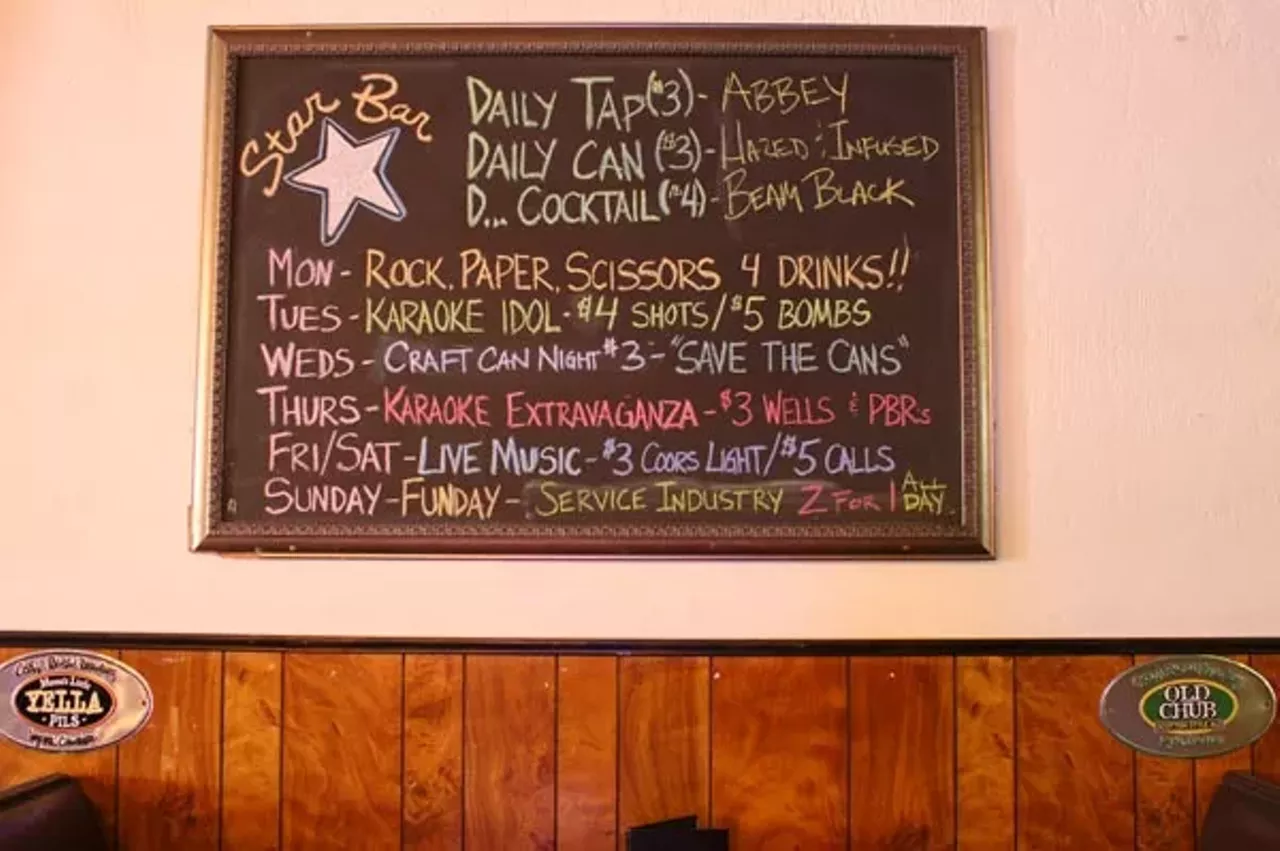 Star Bar
DAILY TAP ($3) - ABBEY
DAILY CAN ($3) - HAZED & INFUSED
D... COCKTAIL ($4) - BEAM BLACK
MON - ROCK, PAPER, SCISSORS 4 DRINKS!!
TUES - KARAOKE IDOL - $4 SHOTS / $5 BOMBS
WEDS - CRAFT CAN NIGHT $3 - "SAVE THE CANS"
THURS - KARAOKE EXTRAVAGANZA - $3 WELLS & PBRs
FRI/SAT - LIVE MUSIC - $3 COORS LIGHT / $5 CALLS
SUNDAY - FUNDAY - SERVICE INDUSTRY 2 FOR 1 ALL DAY
Mama's Little
YELLA
PILS
OLD
CHUB